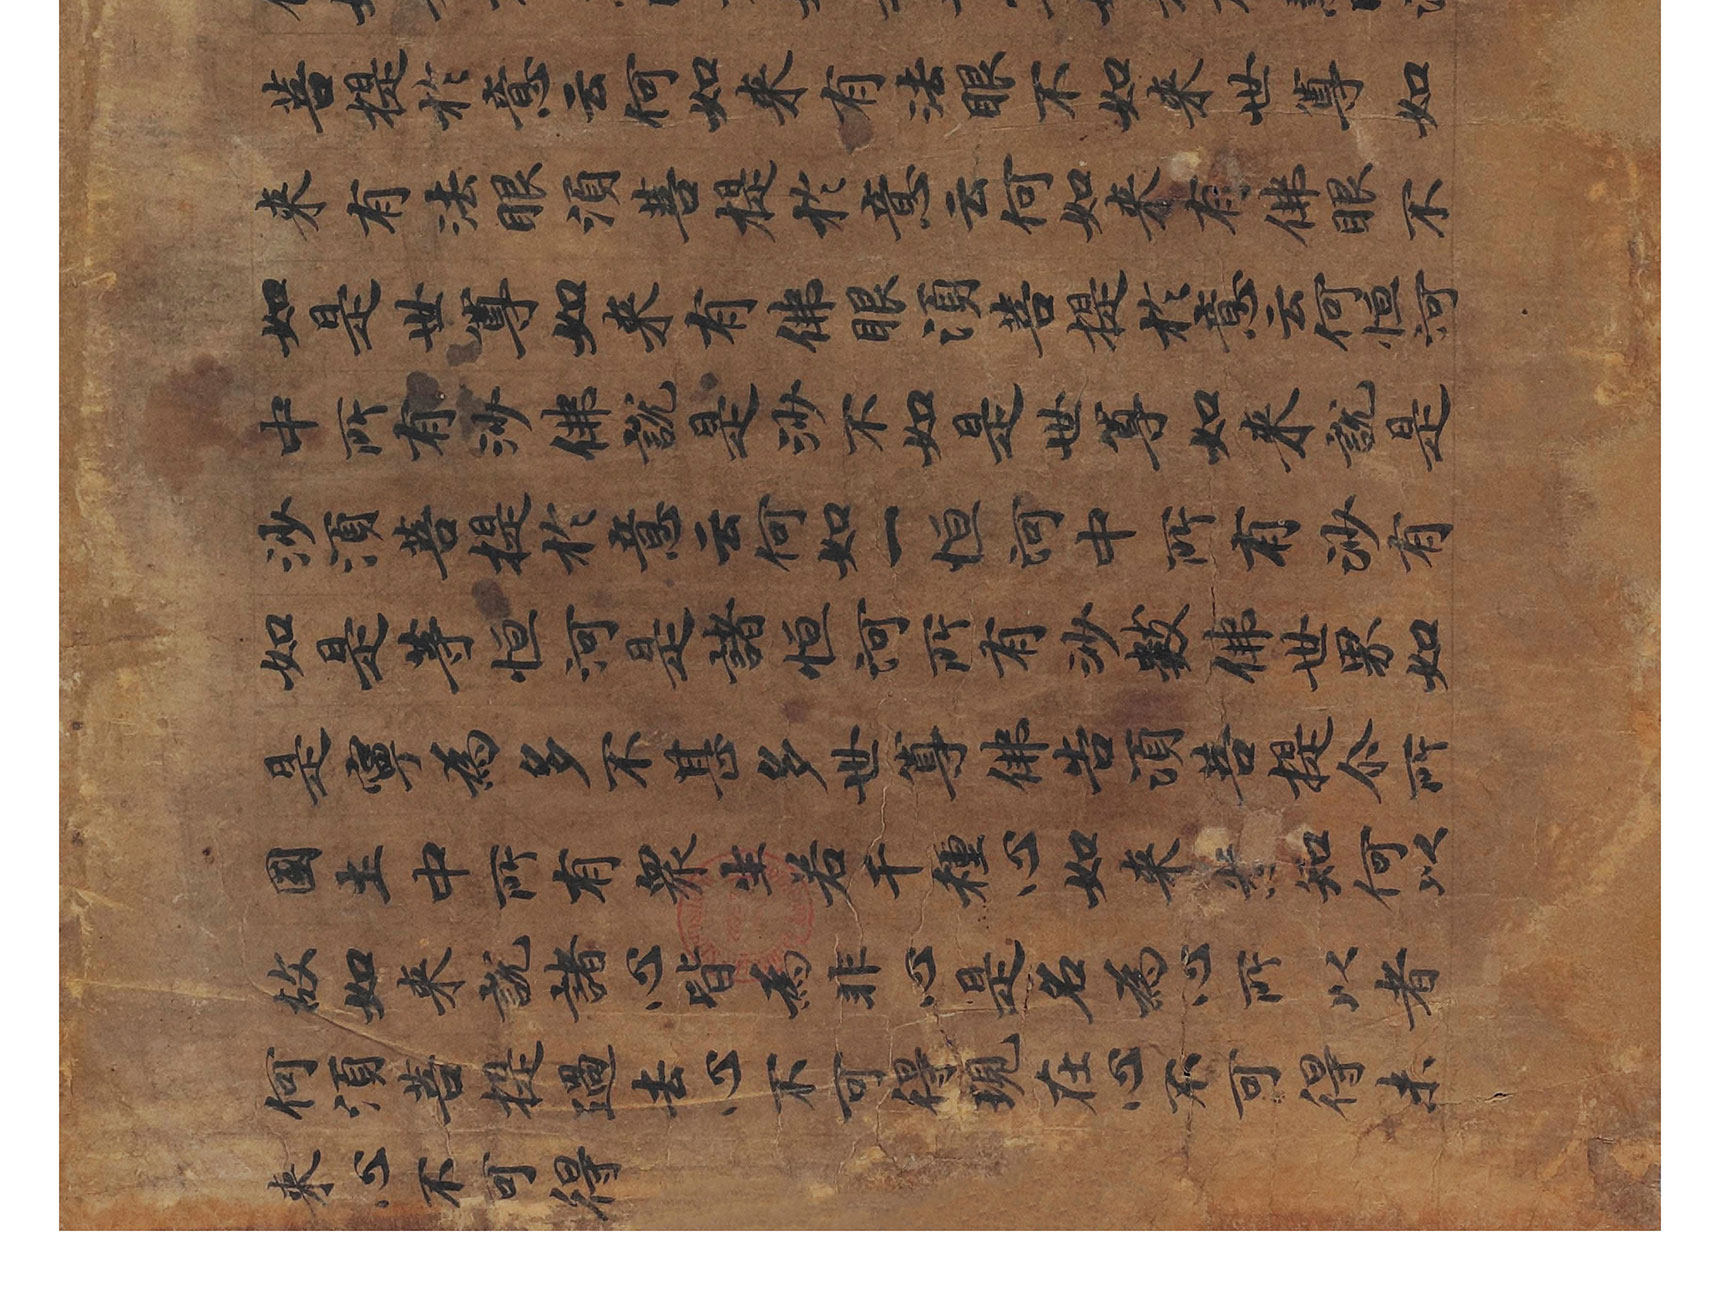 菩提於意云何如来有法眼不如来世尊如
来有法眼須菩提於意云何如来有佛眼不
如是世尊如来有佛眼須菩提於意云何恒河
中所有沙佛説是沙不如是世尊如来説是
沙須菩提於意云何如一恒河中所有沙有
如是等恒河是諸恒河所有沙數佛世界如
是寧為多不甚多世尊佛告須菩提尒所
國土中所有眾生若干種心如来悉知何以
故如来説諸心皆為非心是名為心所以者
何須菩提過去心不可得現在心不可得未
来心不可得